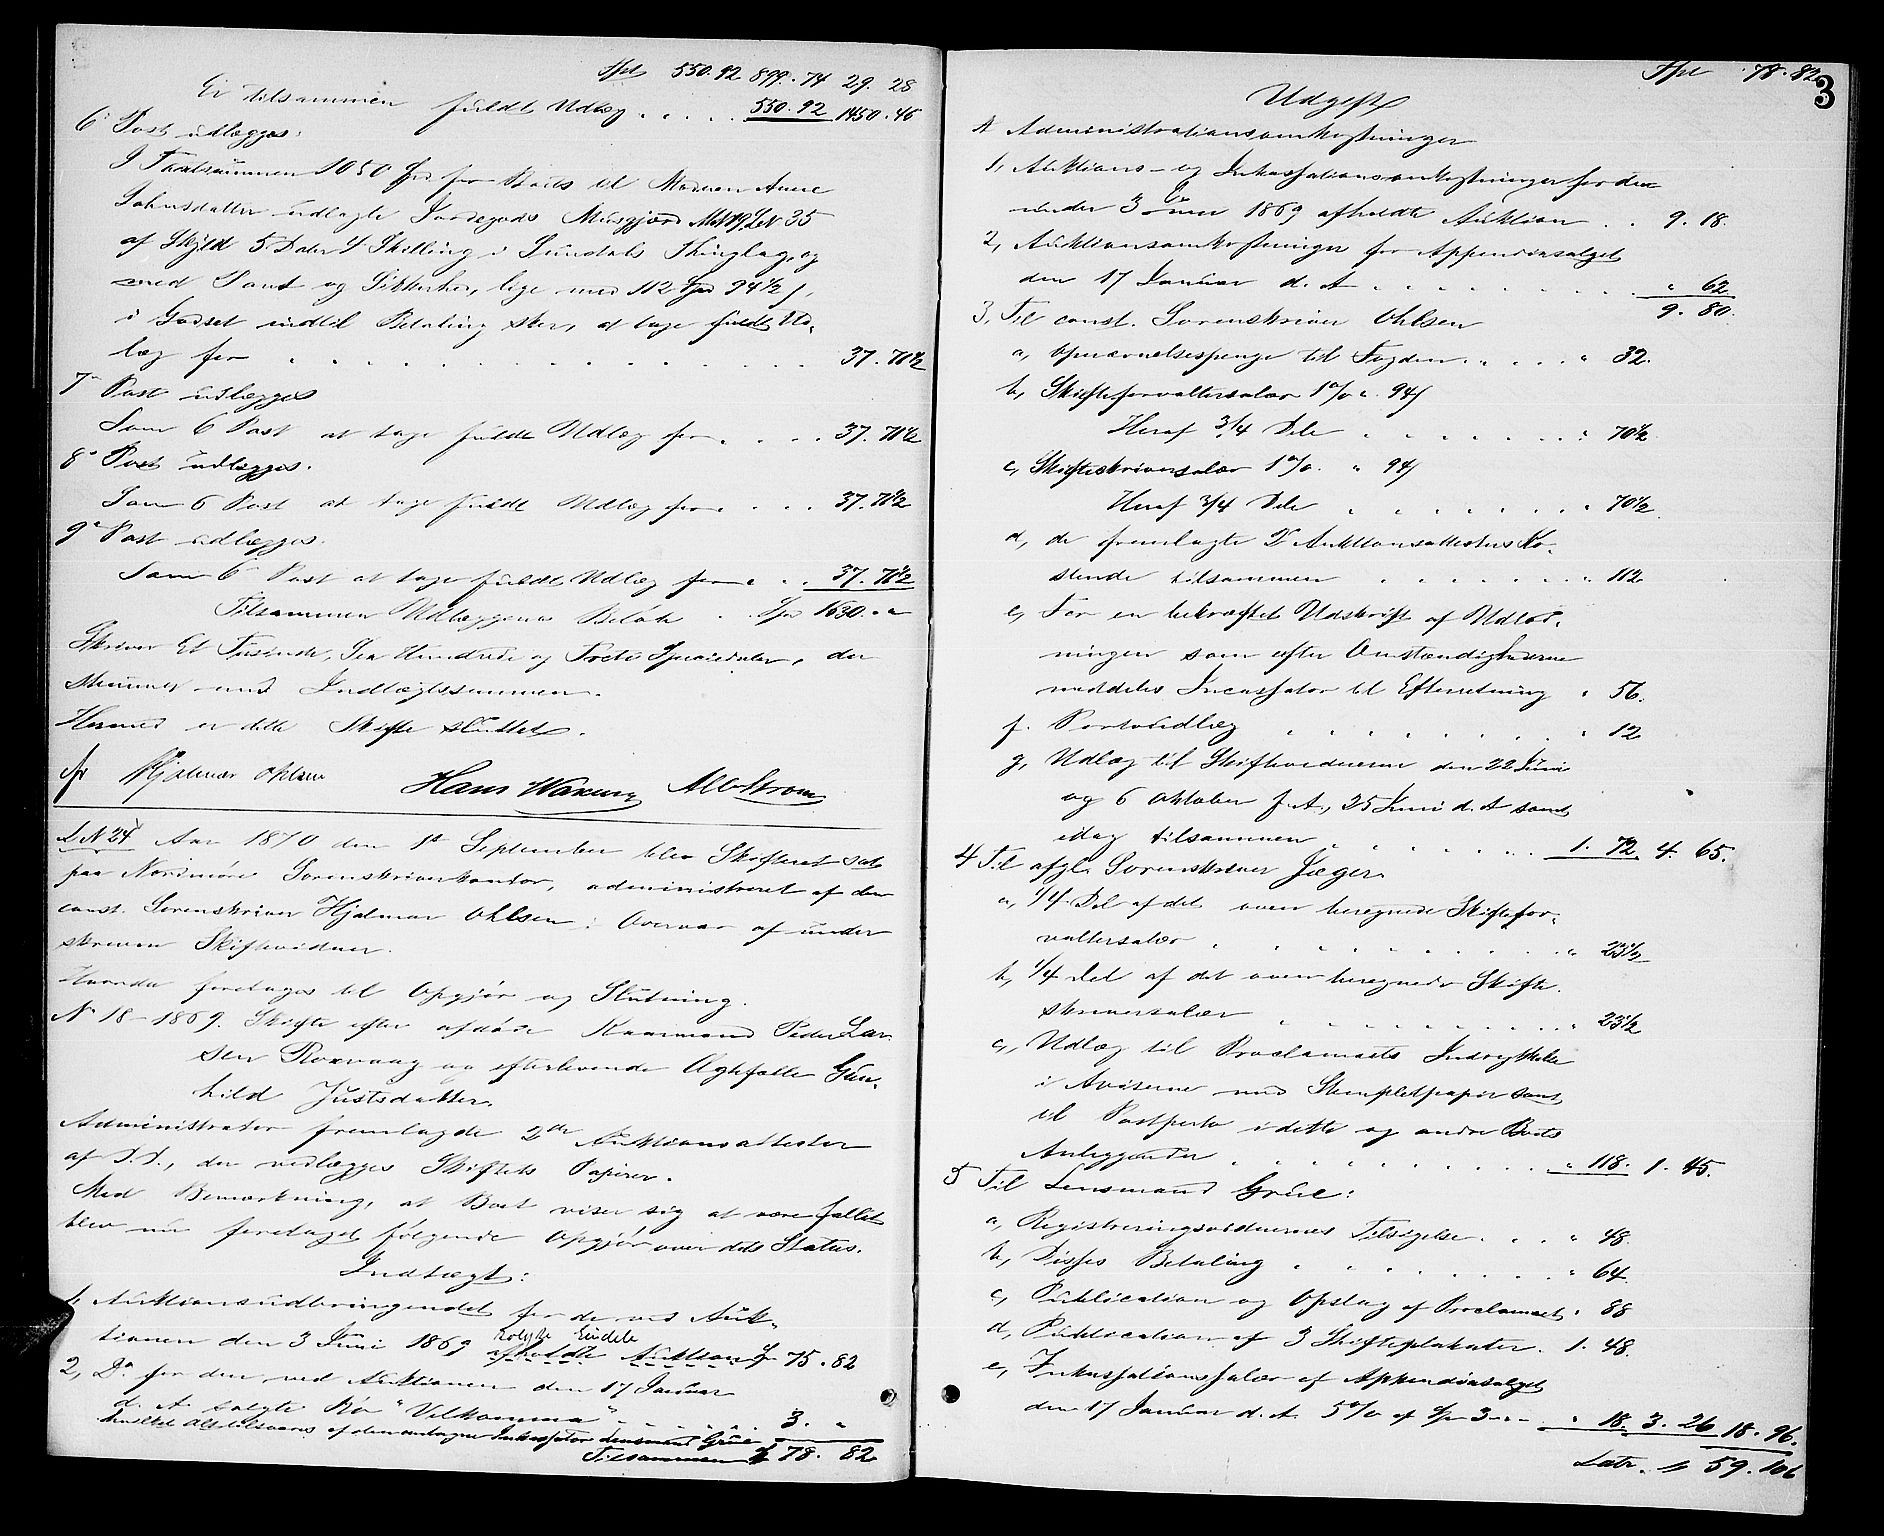 Spd 550.92 899.74 29.28
Er tilsammen fuldt Udlæg . . . . . 550.92 1450.46
6te Post udlægges:
I Taxtsummen 1050 Spd for Boets til Madmen Anne
Johnsdatter udlagte Jordegods Musgjerd Mat N 19 Lø N 35
af Skyld 5 Daler 4 Skilling i Sundals Thinglag, og
med Pant og Sikkerhed, lige med 112 Spd 94½ s,
i Godset indtil Betaling sker, at tage fuldt Ud-
læg for . . . . . . . . . 37.71½
7de Post udlægges
Som 6 Post at tage fuldt Udlæg for . . . . 37.71½
8de Post udlægges.
Som 6 Post at tage fuldt Udlæg for . . . 37.71½
9de Post udlægges.
Som 6 Post at tage fuldt Udlæg for . . 37.71½
Tilsammen Udlæggenes Beløb . . Spd 1630. "
Skriver Et Tusinde, Sex Hundrede og Tredive Speciedaler, der
stemmer med Indtægtssummen.
Hermed er dette Skifte sluttet.
Hjalmar Ohlsen Hans Waxeng
L N 24 Aar 1870 den 1st September blev Skifteret sat
paa Nordmøre Sorenskriverkontor, administreret af den
const. Sorenskriver Hjalmar Ohlsen i Overvær af under
skrevne Skiftevidner.
Hvorda foretages til Opgjør og Slutning.
N 18 - 1869. Skifte efter afdøde Kaarmand Peder Lar
sen Roxvaag og efterlevende Ægtefælle Gun-
hild Justsdatter.
Administrator fremlagde 2de Auktionsattester
af D.D., der vedlægges Skiftets Papirer.
Med Bemærkning, at Boet viser sig at være fallit
blev nu foretaget følgende Opgjør over dets Status.
Indtægt:
1, Auktionsudbringendet for de ved Auk-
tionen den 3 Juni 1869 solgte Eiendele
afholdte Auktion Sp 75.82
2, Do for den ved Auktionen den 17 Januar
d. A. solgte Ko "Velkomma" . . . . . . 3. "
hvilket Alt tilsvares af den antagne Inkassator Lensmand Grüe
Tilsammen Sp 78. 82
Spd 78.82
3
Udgift
A Administrationsomkostninger
1, Auktions- og Inkassationsomkostninger for den
under 3 Juni 1869 afholdte Auktion . . 9.18.
2, Auktionsomkostninger for Appendixsalget
den 17 Januar d. A . . . . . . . . . " 62
9. 80.
3, Til const. Sorenskriver Ohlsen
a, Opnævnelsespenge til Fogden . . . . . " 32.
b, Skifteforvaltersalær 1 % " 94 s
Heraf 3/4 Dele . . . . . . . " 70½.
c, Skifteskriversalær 1 % " 94 s
Heraf 3/4 Dele . . . . . . . " 70½.
d, de fremlagte 2de Auktionsattesters Ko-
stende tilsammen . . . . . . . " 112.
e, For en bekræftet Udskrift af Udlod-
ningen som efter Omstændighederne
meddeles Incassator til Efterretning " 56.
f. Portoudlæg . . . . . . . . . " 12
g, Udlæg til Skiftevidnerne den 22 Juni
og 6 Oktober f. A., 25 Juni d. A samt
idag tilsammen . . . . . . . 1. 72 4. 65.
4 Til afgl. Sorenskriver Jæger.
a, 1/4 Del af det oven beregnede Skiftefor-
valtersalær . . . . . . . . . . " 23½
b, 1/4 Del af det oven beregnede Skifte-
skriversalær . . . . . . . . . " 23½
c, Udlæg til Proclamaets Indrykkelse
i Aviserne med Stempletpapir samt
til Postporto i dette og andre Boets
Anliggender . . . . . . . . . " 118. 1. 45.
5 Til Lensmand Grüe:
a, Registreringsvidnernes Tilsigelse . . . " 48.
b, Disses Betaling . . . . . . . . " 64.
c, Publication og Opslag af Proclamaet " 88
d, Publication af 3 Skifteplakater . 1. 48.
e, Inkassationssalær af Appendixsalget
den 17 Januar d. A. 5 % af Sp 3 - " - " 18. 3. 26 18. 96.
Latr. Sp 59. 106